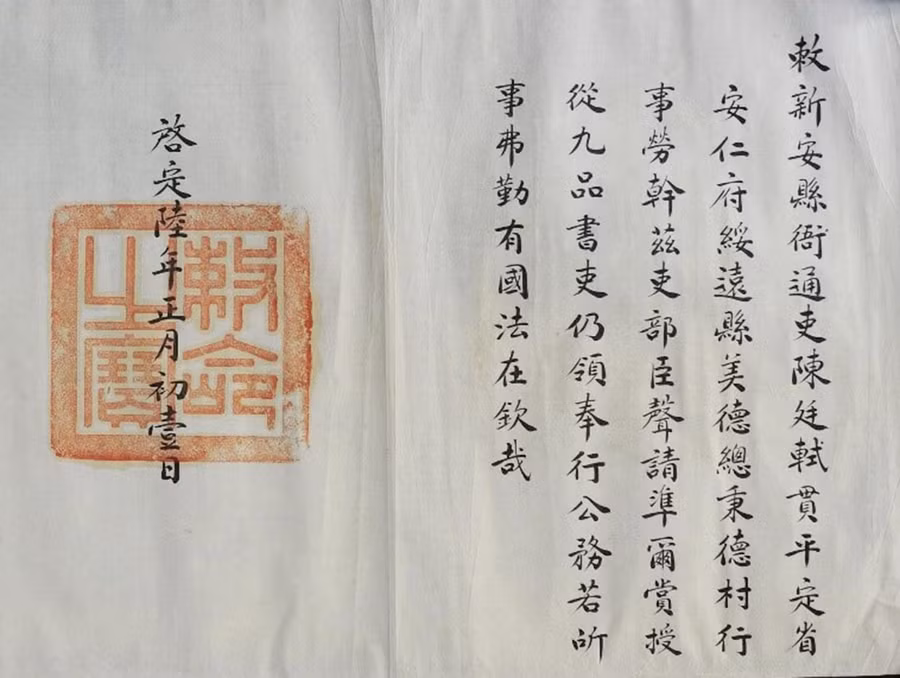 敕新安縣衙通吏陳廷軾貫平定省
安仁府綏遠縣美德總秉德村行
事勞幹茲吏部臣聲請準爾賞授
從九品書吏仍領奉行公務若所
事弗勤有國法在欽哉
啓定陸年正月初壹日
敕命
之寶